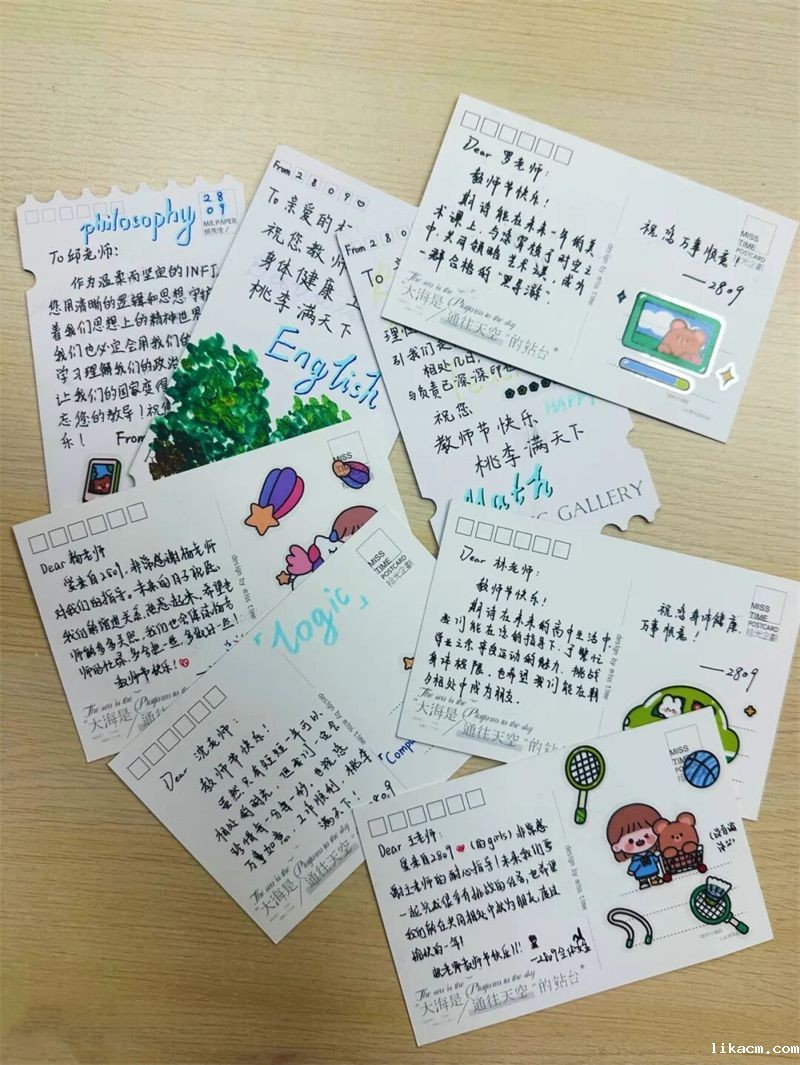 philosophy
2809
MR.PAPER
纸先生/
To 邱老师:
作为温柔而坚定的INFJ
您用清晰的逻辑和思想守护
着我们思想上的精神世界
我们也必定会用我们的
学习理解我们的政治
让我们的国家变得
忘您的教导!祝您
乐!
From
From 2809
To 亲爱的
祝您教师
身体健康
桃李满天下
English
From 280
To
引我们走
相处几日,
与负责已深深印在
祝您
教师节快乐
桃李满天下
HAPPY
Math
GALLERY
Dear 罗老师:
教师节快乐!
期待能在未来一年的美
术课上,与您穿梭于时空之
中,共同领略艺术之美,成为
一群合格的"黑导游"。
祝您万事顺意!
——2809
MISS
TIME
POSTCARD
拾光企劃
The sea is the Platform to the sky
"大海是/通往天空"的站台"
Dear 杨老师
爱来自2809,非常感谢杨老师
对我们的指导。未来的日子祝愿
教师节快乐!
MISS
design by miss time
The sea is the Platform to the sky
"大海是/通往天空
「Logic」
MISS
TIME
POSTCARD
拾光企劃
Dear 沈老师:
教师节快乐!
虽然只有短短一年可以
相处的时光,但我们一定会
珍惜每一分每一秒,也祝您
万事如意,工作顺利,桃李
满天下!
2809
design by miss time
「Comp
The sea is the Platform to the sky
"大海是/通往天空"
Dear 林老师:
教师节快乐!
期待在未来的高中生活中,
我们能在您的指导下,于繁忙
学业之余享受运动的魅力,挑战
身体极限,也希望我们能在期
与相处中成为朋友。
祝您身体健康,
万事顺意!
——2809
MISS
TIME
POSTCARD
拾光企劃
design by miss time
The sea is the Platform to the sky
"大海是/通往天空"的站台"
Dear 王老师:
爱来自2809(的girls)非常感
谢王老师的耐心指导!未来我们要
一起完成很多有挑战的任务,也希望
我们能在共同相处中成为朋友,度过
愉快的一年!
祝老师教师节快乐!!!
—2809全体女生
MISS
design by miss time
The sea is the Platform to the sky
"大海是/通往天空"的站台"
likacm.com